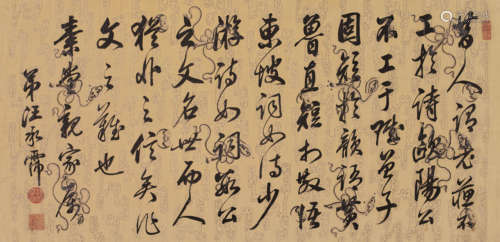 昔人謂老蘇不
工於詩歐陽公
不工于賦曾子
固短於韻語黃
魯直短於散語
東坡詞如詩少
游詩如詞數公
之文名世而人
猶非之信矣作
文之難也
素堂親家屬
弟汪承霈